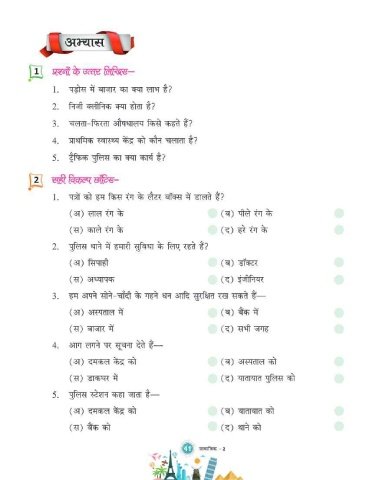 अभ्यास
1 प्रश्नों के उत्तर लिखिए—
1. पड़ोस में बाजार का क्या लाभ है?
2. निजी क्लीनिक क्या होता है?
3. चलता-फिरता औषधालय किसे कहते हैं?
4. प्राथमिक स्वास्थ्य केंद्र को कौन चलाता है?
5. ट्रैफिक पुलिस का क्या कार्य है?
2 सही विकल्प छाँटिए—
1. पत्रों को हम किस रंग के लैटर बॉक्स में डालते हैं?
(अ) लाल रंग के (ब) पीले रंग के
(स) काले रंग के (द) हरे रंग के
2. पुलिस थाने में हमारी सुविधा के लिए रहते हैं?
(अ) सिपाही (ब) डॉक्टर
(स) अध्यापक (द) इंजीनियर
3. हम अपने सोने-चाँदी के गहने धन आदि सुरक्षित रख सकते हैं—
(अ) अस्पताल में (ब) बैंक में
(स) बाजार में (द) सभी जगह
4. आग लगने पर सूचना देते हैं—
(अ) दमकल केंद्र को (ब) अस्पताल को
(स) डाकघर में (द) यातायात पुलिस को
5. पुलिस स्टेशन कहा जाता है—
(अ) दमकल केंद्र को (ब) यातायात को
(स) बैंक को (द) थाने को
सामाजिक - 2